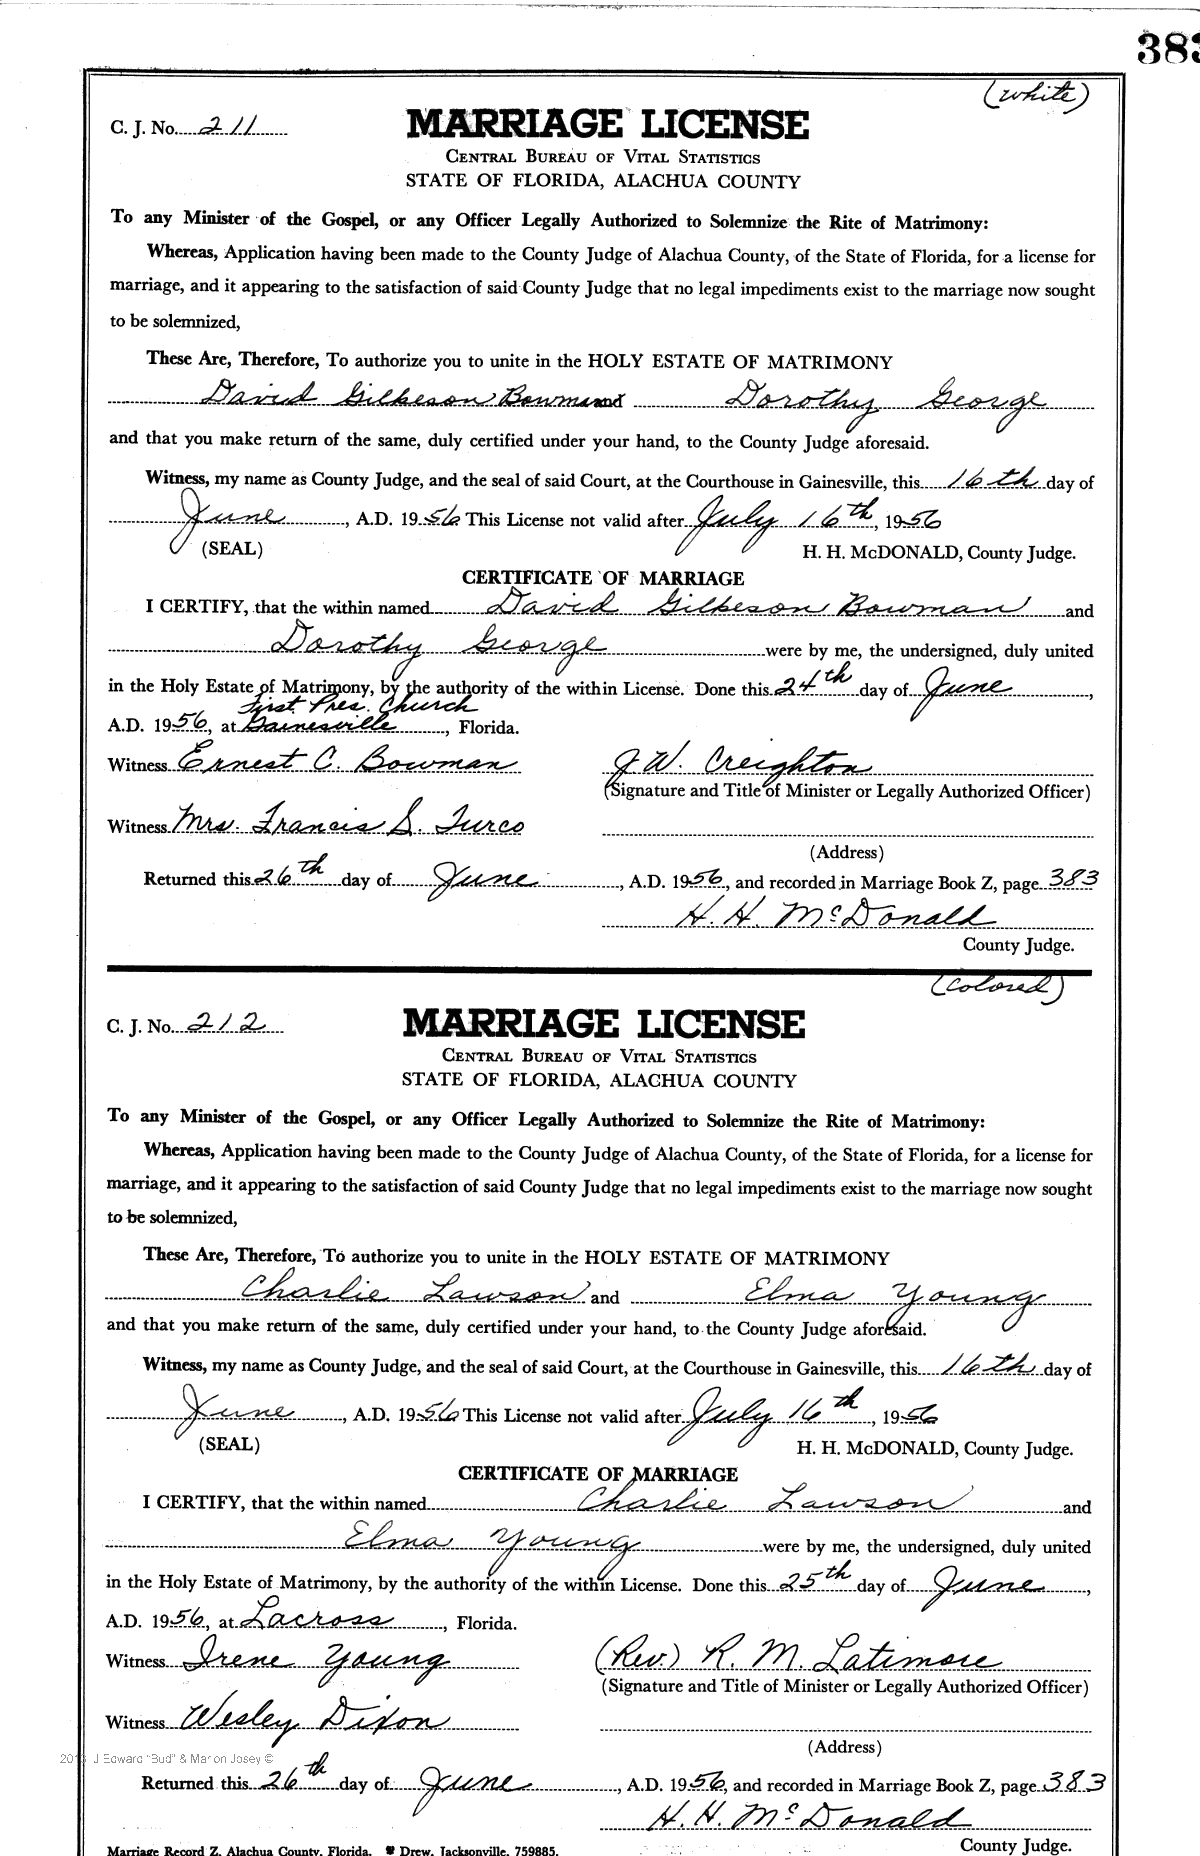 383
(white)
C. J. No. 211
MARRIAGE LICENSE
CENTRAL BUREAU OF VITAL STATISTICS
STATE OF FLORIDA, ALACHUA COUNTY
To any Minister of the Gospel, or any Officer Legally Authorized to Solemnize the Rite of Matrimony:
Whereas, Application having been made to the County Judge of Alachua County, of the State of Florida, for a license for
marriage, and it appearing to the satisfaction of said County Judge that no legal impediments exist to the marriage now sought
to be solemnized,
These Are, Therefore, To authorize you to unite in the HOLY ESTATE OF MATRIMONY
David Gilkeson Bowman and Dorothy George
and that you make return of the same, duly certified under your hand, to the County Judge aforesaid.
Witness, my name as County Judge, and the seal of said Court, at the Courthouse in Gainesville, this 16th day of
June, A.D. 1956 This License not valid after July 16th, 1956
(SEAL) H. H. McDONALD, County Judge.
CERTIFICATE OF MARRIAGE
I CERTIFY, that the within named David Gilkeson Bowman and
Dorothy George were by me, the undersigned, duly united
in the Holy Estate of Matrimony, by the authority of the within License. Done this 24th day of June,
First Pres. Church
A.D. 1956, at Gainesville, Florida.
Witness Ernest C. Bowman J W. Creighton
(Signature and Title of Minister or Legally Authorized Officer)
Witness Mrs. Francis S. Turco
(Address)
Returned this 26th day of June, A.D. 1956, and recorded in Marriage Book Z, page 383
H. H. McDonald
County Judge.
(Colored)
C. J. No. 212
MARRIAGE LICENSE
CENTRAL BUREAU OF VITAL STATISTICS
STATE OF FLORIDA, ALACHUA COUNTY
To any Minister of the Gospel, or any Officer Legally Authorized to Solemnize the Rite of Matrimony:
Whereas, Application having been made to the County Judge of Alachua County, of the State of Florida, for a license for
marriage, and it appearing to the satisfaction of said County Judge that no legal impediments exist to the marriage now sought
to be solemnized,
These Are, Therefore, To authorize you to unite in the HOLY ESTATE OF MATRIMONY
Charlie Lawson and Elma Young
and that you make return of the same, duly certified under your hand, to the County Judge aforesaid.
Witness, my name as County Judge, and the seal of said Court, at the Courthouse in Gainesville, this 16th day of
June, A.D. 1956 This License not valid after July 16th, 1956
(SEAL) H. H. McDONALD, County Judge.
CERTIFICATE OF MARRIAGE
I CERTIFY, that the within named Charlie Lawson and
Elma Young were by me, the undersigned, duly united
in the Holy Estate of Matrimony, by the authority of the within License. Done this 25th day of June,
A.D. 1956, at Lacross, Florida.
Witness Irene Young (Rev.) R. M. Latimore
(Signature and Title of Minister or Legally Authorized Officer)
Witness Wesley Dixon
(Address)
J Edward "Bud" & Marion Josey ©
Returned this 26th day of June, A.D. 1956, and recorded in Marriage Book Z, page 383
H. H. McDonald
County Judge.
Marriage Record Z, Alachua County, Florida. Drew, Jacksonville, 759885.